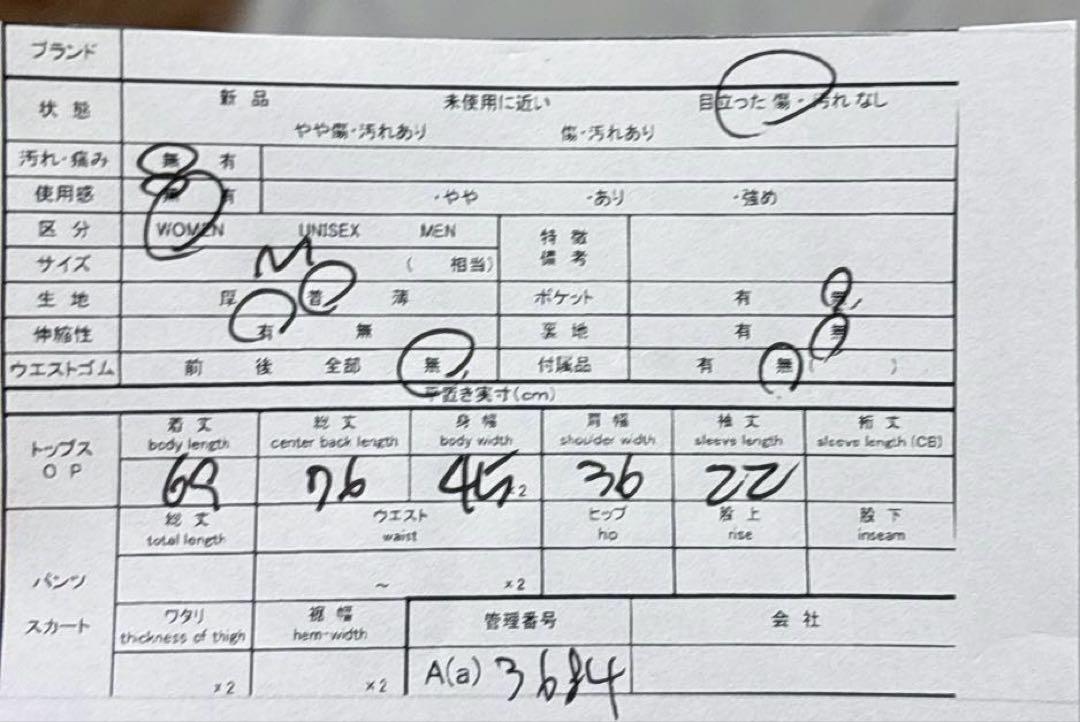 ブランド
状態 新品 未使用に近い 目立った傷・汚れなし
やや傷・汚れあり 傷・汚れあり
汚れ・痛み 無 有
使用感 無 有 ・やや ・あり ・強め
区分 WOMEN UNISEX MEN 特徴
サイズ M ( 相当) 備考
生地 厚 普 薄 ポケット 有 無
伸縮性 有 無 裏地 有 無
ウエストゴム 前 後 全部 無 付属品 有 無 ( )
平置き実寸(cm)
着丈 総丈 身幅 肩幅 袖丈 裄丈
トップス body length center back length body width shoulder width sleeve length sleeve length (CB)
OP 76 45 ×2 36 22
総丈 ウエスト ヒップ 股上 股下
total length waist hip rise inseam
パンツ ~ ×2
スカート ワタリ 裾幅 管理番号 会社
thickness of thigh hem-width
×2 ×2 A(a) 3684